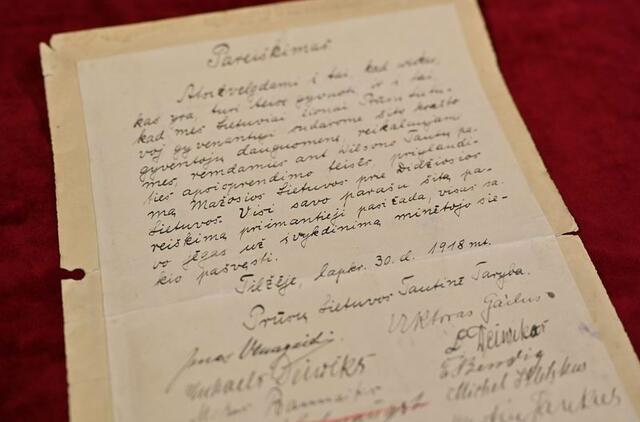 Pareiškimas
Atsižvelgdami į tai, kad viskas,
kas yra, turi teisę gyvuoti, ir į tai,
kad mes Lietuviai čionai Prūsų Lietu-
voj gyvenantieji sudarome šito krašto
gyventojų daugumenę, reikalaujam
mes, remdamies ant Wilsono Tautų pa-
ties apsisprendimo teisės, priglaudi-
mą Mažosios Lietuvos prie Didžiosios
Lietuvos. Visi savo parašu šitą pa-
reiškimą priimantieji pasižada, visas sa-
vo jėgas už įvykdinimą minėtojo sie-
kio pašvęsti.
Tilžėje, lapkr. 30. d. 1918 mt.
Prūsų Lietuvos Tautinė Taryba.
Viktoras Gailus.
Mikelis Deiwiks
L Deiwikas